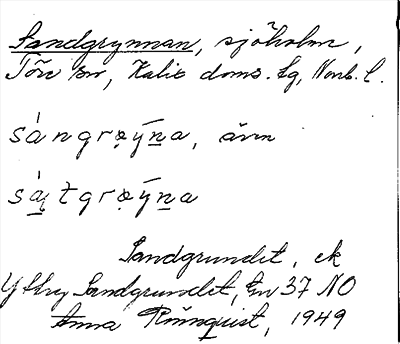 Sandgrynnan, sjöholm,
Töre sn, Kalix doms. lg, Norrb. l.
sángrǫýna, även
są́tgrǫýna
Sandgrundet, ek
Yttry Sandgrundet, Gn 37 NO
Anna Rönnquist, 1949